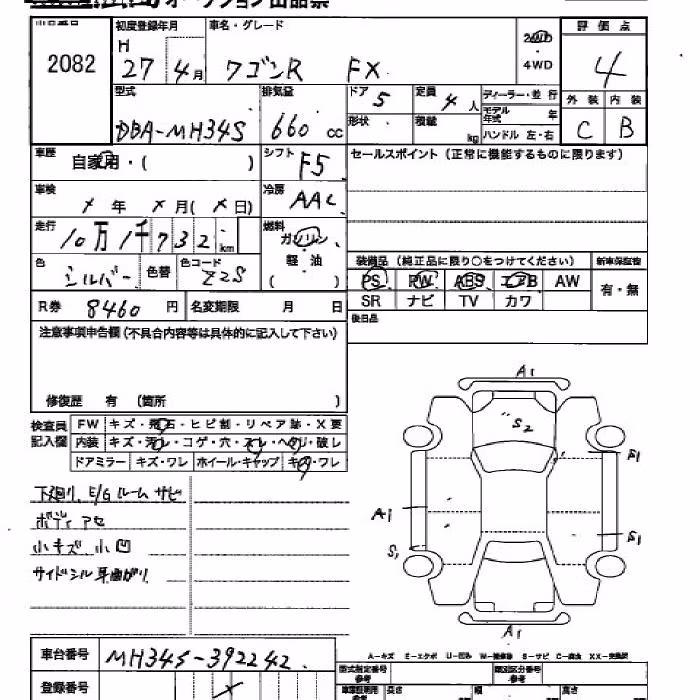 オークション出品票
出品番号 初度登録年月 車名・グレード 評価点
2082 H 27年4月 ワゴンR FX 2WD 4WD 4
型式 排気量 ドア 5 定員 4人 ディーラー・並行 外装 内装
DBA-MH34S 660cc 形状 積載 kg モデル年式 年 ハンドル 左・右 C B
車歴 自家用・( ) シフト F5 セールスポイント (正常に機能するものに限ります)
車検 年 月( 日) 冷房 AAC
走行 10万1千732km 燃料 ガソリン、軽油 ( )
色 シルバー 色替 色コード Z2S
装備品 (純正品に限り○をつけてください) 新車保証書
PS PW ABS エアB AW 有・無
SR ナビ TV カワ
R券 8460円 名変期限 月 日 後日品
注意事項申告欄 (不具合内容等は具体的に記入して下さい)
修復歴 有 (箇所 )
検査員記入欄 FW キズ・飛石・ヒビ割・リペア跡・X要
内装 キズ・汚レ・コゲ・穴・スレ・ヘリ・破レ
ドアミラー キズ・ワレ ホイール・キャップ キズ・ワレ
下廻り、E/Gルーム サビ
ボディ アセ
小キズ 小凹
サイドシル 耳曲がり
A1
S2
S1
A1
S1
S1
A1
A-キズ E-エクボ U-凹み W-補修跡 S-サビ C-腐食 XX-交換済
車台番号 MH34S-392242
登録番号
型式指定番号 類別区分番号
長さ 幅 高さ